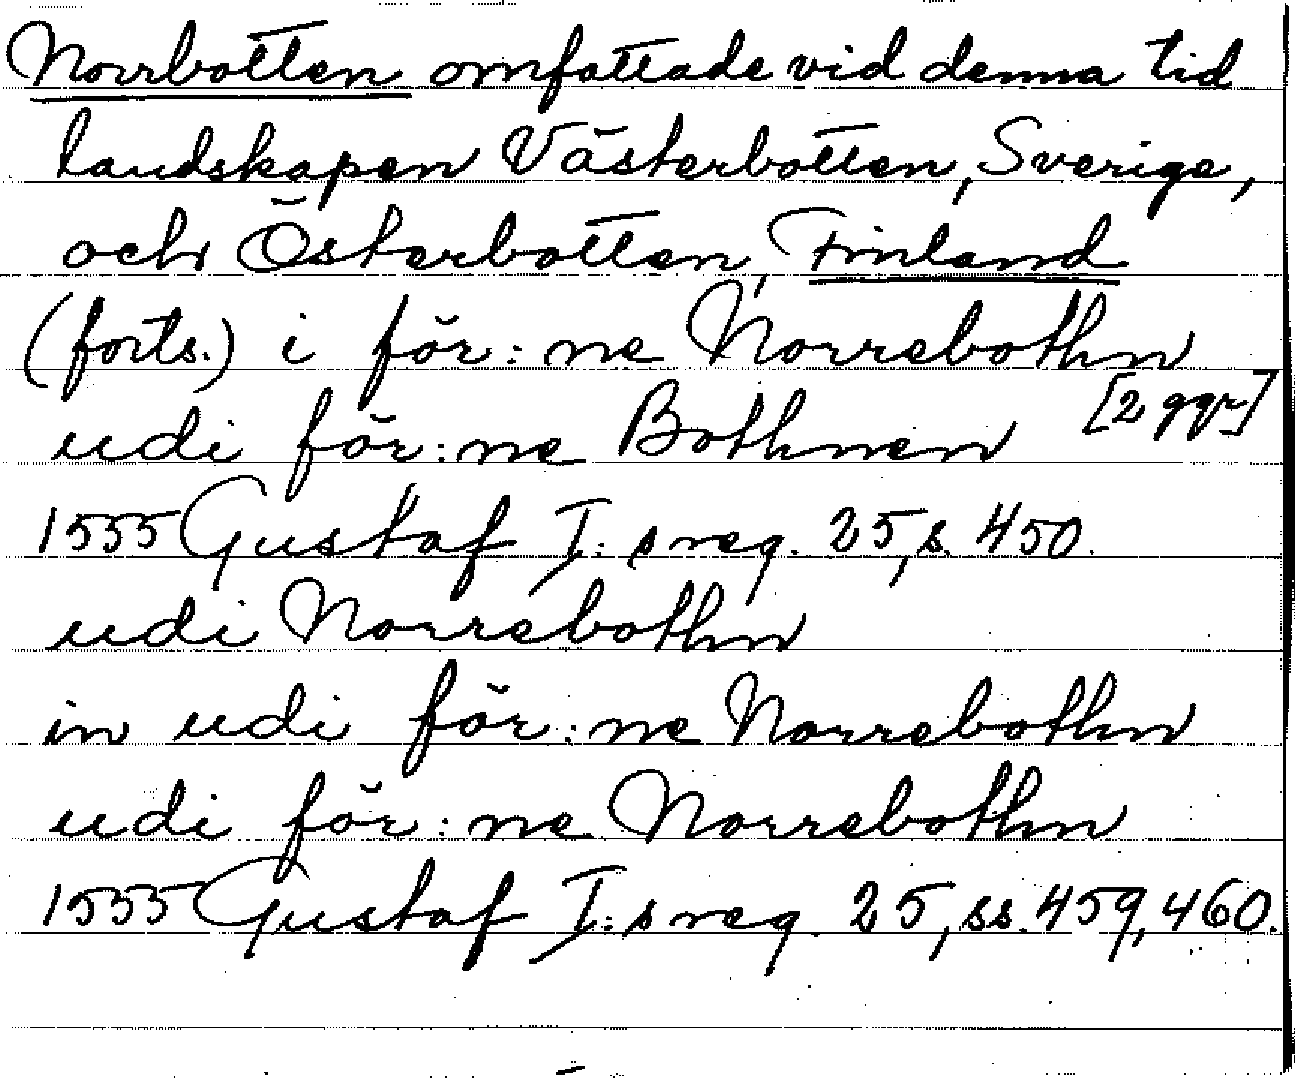 Norrbotten omfattade vid denna tid
landskapen Västerbotten, Sverige,
och Österbotten, Finland
(forts.) i för:ne Norrebothn
[2 ggr]
udi för:ne Bothnen
1555 Gustaf I:s reg. 25, s. 450.
udi Norrebothn
in udi för:ne Norrebothn
udi för:ne Norrebothn
1555 Gustaf I:s reg. 25, ss. 459, 460.